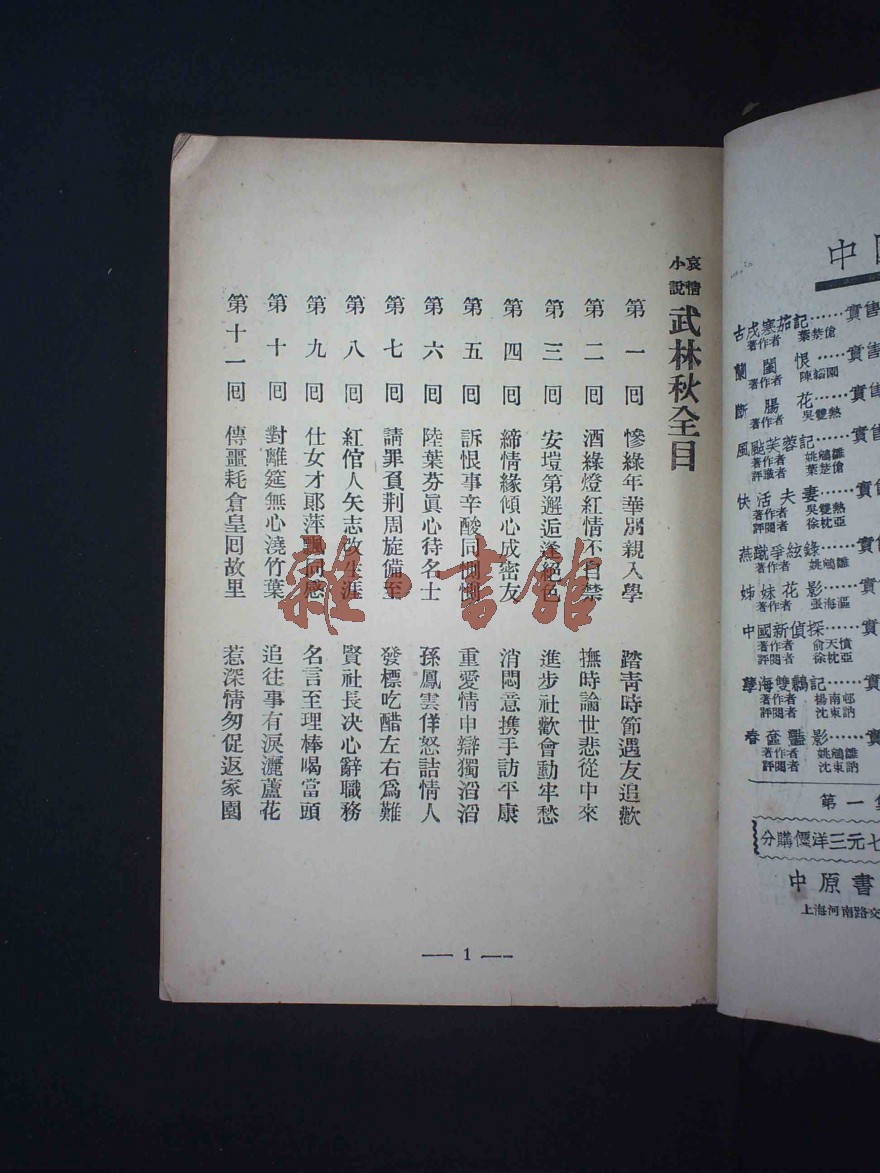 中
古戍寒笳記……實售
著作者 葉楚傖
蘭閨恨……實售
著作者 陳韜園
斷腸花……實售
著作者 吳雙熱
風颭芙蓉記……實售
著作者 姚鵷雛
評識者 葉楚傖
快活夫妻……實售
著作者 吳雙熱
評閱者 徐枕亞
燕蹴箏絃錄……實
著作者 姚鵷雛
姊妹花影……實
著作者 張海漚
中國新偵探……實
著作者 俞天憤
評閱者 徐枕亞
孽海雙鶼記……實
著作者 楊南邨
評閱者 沈東訥
春奩豔影……實
著作者 姚鵷雛
評閱者 沈東訥
第一集
分購價洋三元七
中原書
上海河南路交
哀情小說 武林秋全目
第一囘 慘綠年華別親入學 踏青時節遇友追歡
第二囘 酒綠燈紅情不自禁 撫時論世悲從中來
第三囘 安塏第邂逅逢絕色 進步社歡會動牢愁
第四囘 締情緣傾心成密友 消悶意携手訪平康
第五囘 訴恨事辛酸同惻惻 重愛情申辯獨滔滔
第六囘 陸葉芬眞心待名士 孫鳳雲佯怒詰情人
第七囘 請罪負荆周旋備至 發標吃醋左右爲難
第八囘 紅倌人矢志改生涯 賢社長决心辭職務
第九囘 仕女才郞萍飄同感 名言至理棒喝當頭
第十囘 對離筵無心澆竹葉 追往事有淚灑蘆花
第十一囘 傳噩耗倉皇囘故里 惹深情匆促返家園
雜·書館
— 1 —